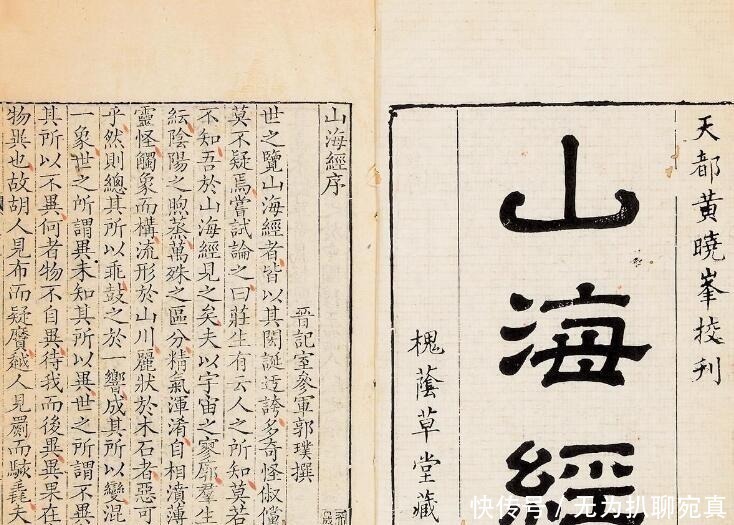 天都黃曉峯挍刊
山海經
槐蔭草堂藏
山海經序
晉記室參軍郭璞撰
世之覽山海經者皆以其閎誕迂誇多奇怪俶儻
莫不疑焉嘗試論之曰莊生有云人之所知莫若
不知吾於山海經見之矣夫以宇宙之寥廓羣生
紜陰陽之煦蒸萬殊之區分精氣渾淆自相濆薄
靈怪觸象而構流形於山川麗狀於木石者惡可
乎然則總其所以乖鼓之於一響成其所以變混
一象世之所謂異未知其所以異世之所謂不異
其所以不異何者物不自異待我而後異異果在
物異也故胡人見布而疑黂越人見罽而駭毳夫
快传号/无为扒聊宛真